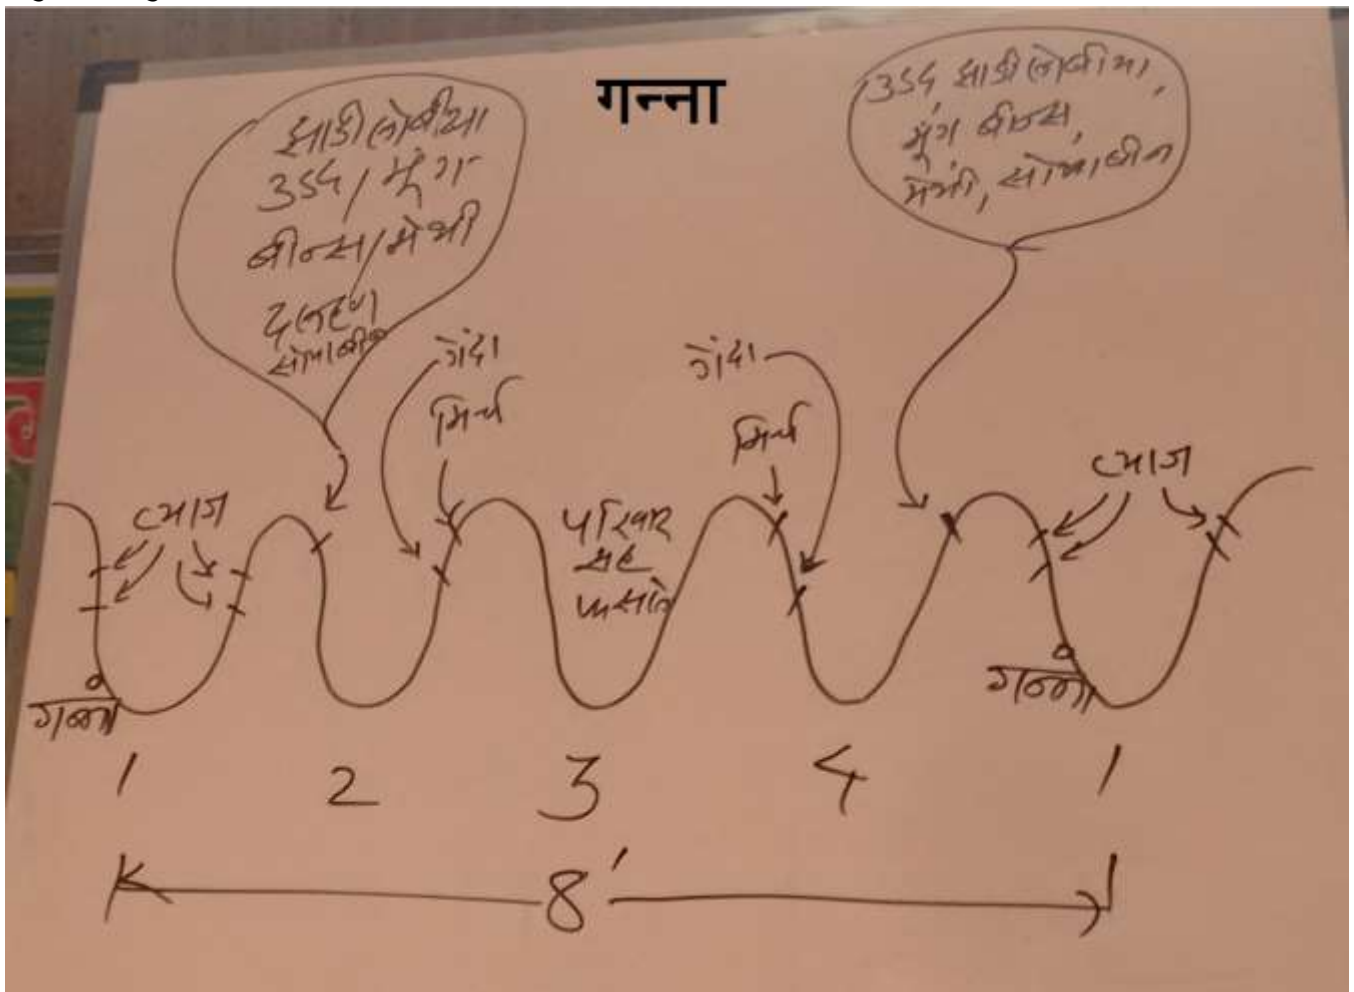 गन्ना
झाडी लोबीया
उडद / मूंग
बीन्स / मेथी
दलहण
सोयाबीन
उडद झाडी लोबीया,
मूंग बीन्स,
मेथी, सोयाबीन
गेंदा
मिर्च
गेंदा
मिर्च
प्याज
प्याज
परिवार
सह
गन्ना
गन्ना
1 2 3 4 1
8'